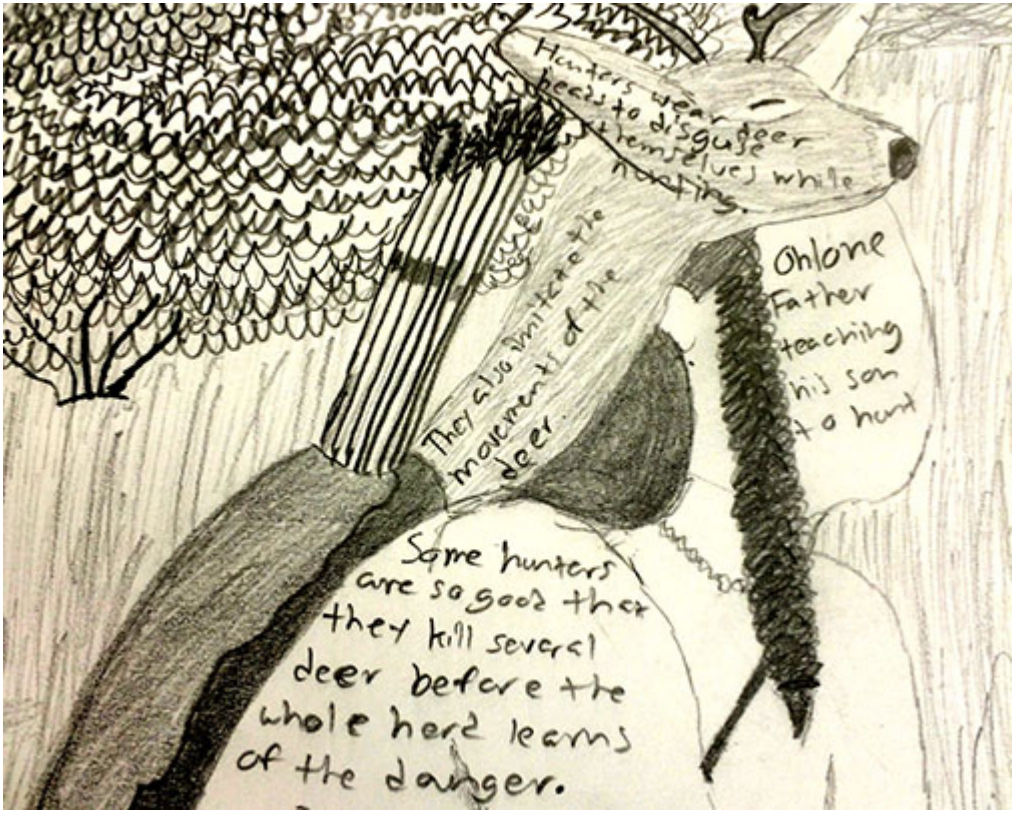 Hunters wear deer
heads to disguise
themselves while
hunting.
They also imitate the
movements of the
deer.
Ohlone
Father
teaching
his son
to hunt
Some hunters
are so good that
they kill several
deer before the
whole herd learns
of the danger.